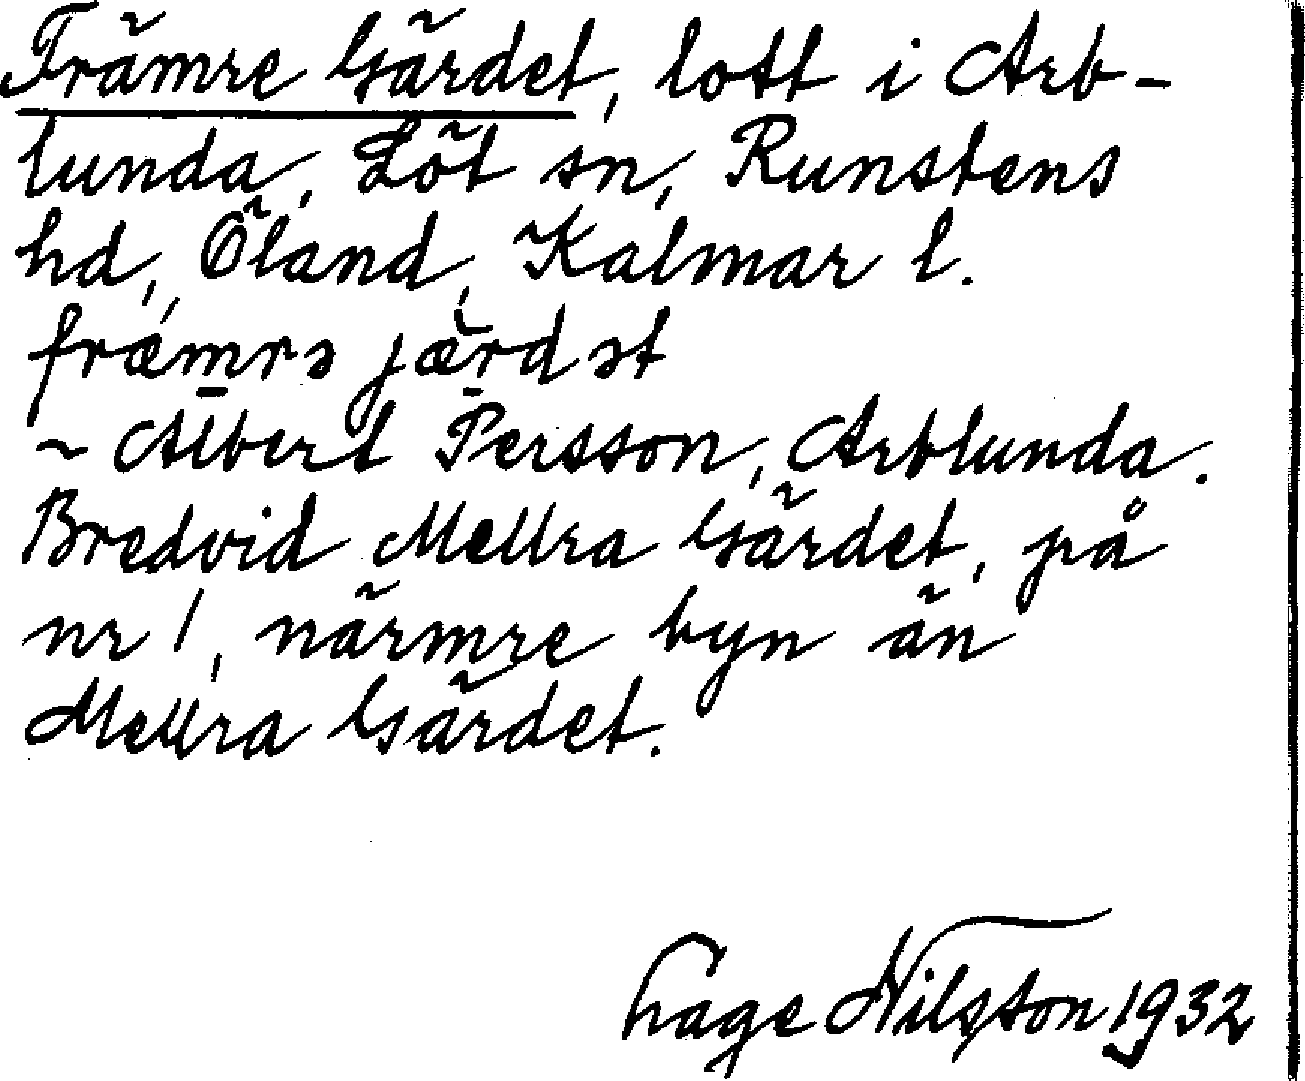 Främre Gärdet, lott i Arb-
lunda, Löt sn, Runstens
hd, Öland, Kalmar l.
fræmrə jærdət
~ Albert Persson, Arblunda.
Bredvid Mellra Gärdet, på
nr 1, närmre byn än
Mellra Gärdet.
Hage Nilsson 1932